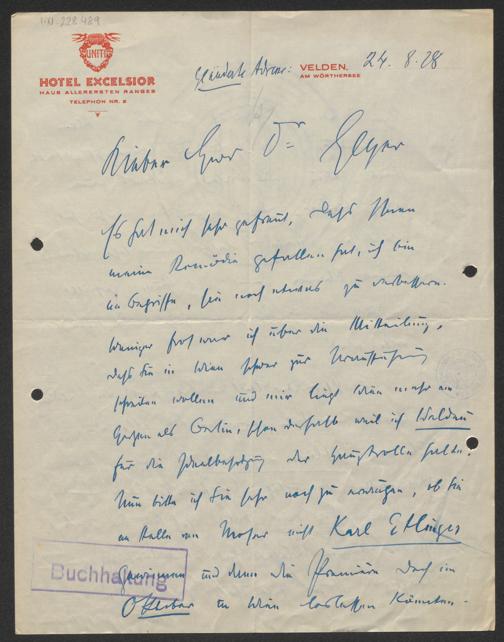 I.N. 228.489
UNITI
HOTEL EXCELSIOR
HAUS ALLERERSTEN RANGES
TELEPHON NR. 2
Geänderte Adresse: VELDEN, 24. 8. 28
AM WÖRTHERSEE
Lieber Herr Dr Geyer
Es hat mich sehr gefreut, dass Ihnen
meine Komödie gefallen hat, ich bin
im Begriffe, sie noch etwas zu verbessern.
Weniger froh war ich über die Mitteilung,
dass Sie in Wien schwer zur Uraufführung
schreiten wollen und mir liegt Wien mehr am
Herzen als Berlin, schon deshalb weil ich Waldau
für die Idealbesetzung der Hauptrolle halte.
Nun bitte ich Sie sehr noch zu erwägen, ob Sie
an Stelle von Moser nicht Karl Etlinger
gewinnen und dann die Première doch im
Oktober in Wien loslassen könnten.
Buchhaltung